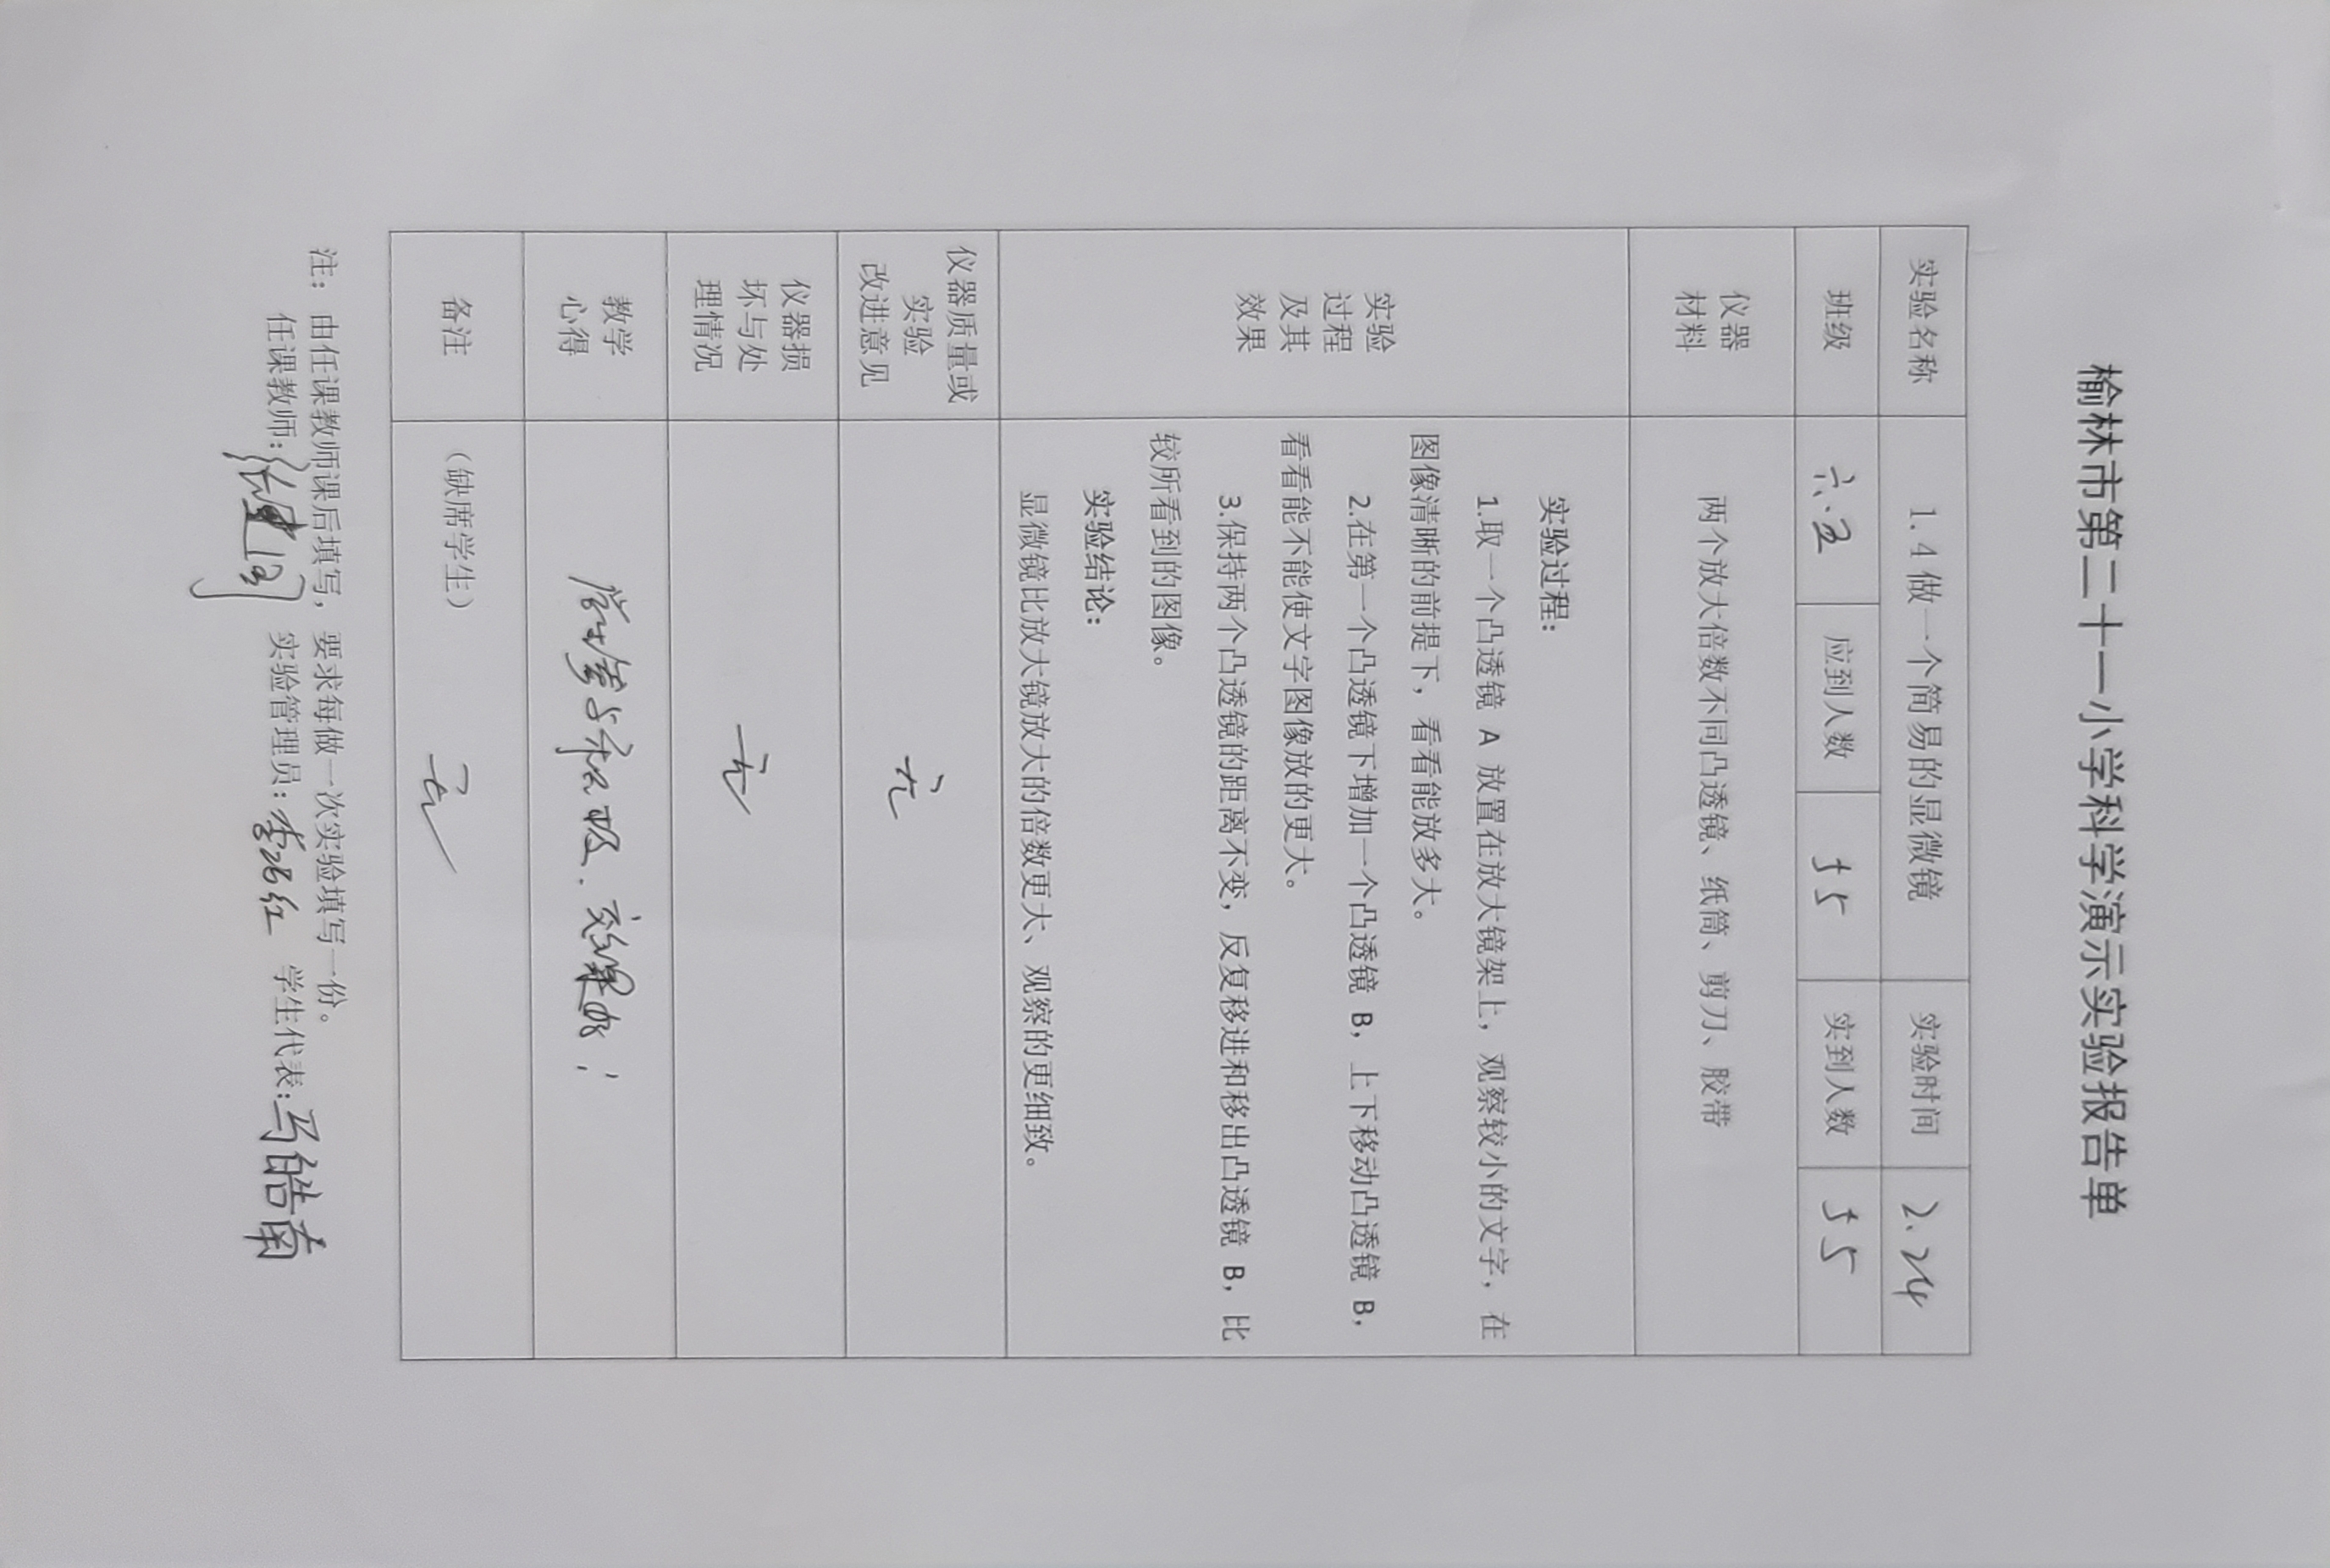 榆林市第二十一小学科学演示实验报告单
实验名称 1.4 做一个简易的显微镜 实验时间 2.24
班级 六.五 应到人数 55 实到人数 55
仪器
材料
两个放大倍数不同凸透镜、纸筒、剪刀、胶带
实验
过程
及其
效果
实验过程：
1.取一个凸透镜 A 放置在放大镜架上，观察较小的文字，在
图像清晰的前提下，看看能放多大。
2.在第一个凸透镜下增加一个凸透镜 B，上下移动凸透镜 B，
看看能不能使文字图像放的更大。
3.保持两个凸透镜的距离不变，反复移进和移出凸透镜 B，比
较所看到的图像。
实验结论：
显微镜比放大镜放大的倍数更大、观察的更细致。
仪器质量或
实验
改进意见
无
仪器损
坏与处
理情况
无
教学
心得
效果好；
备注
（缺席学生）
无
注：由任课教师课后填写，要求每做一次实验填写一份。
任课教师： 实验管理员： 红 学生代表：马皓南